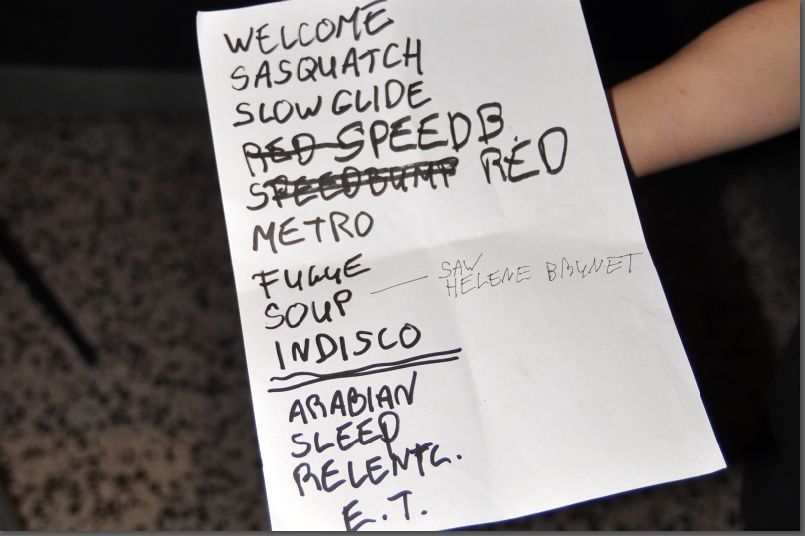 WELCOME
SASQUATCH
SLOW GLIDE
RED SPEEDB.
SPEEDBUMP RED
METRO
FUGUE
SOUP
SAW
HELENE BRUNET
INDISCO
ARABIAN
SLEEP
RELENTL.
E.T.